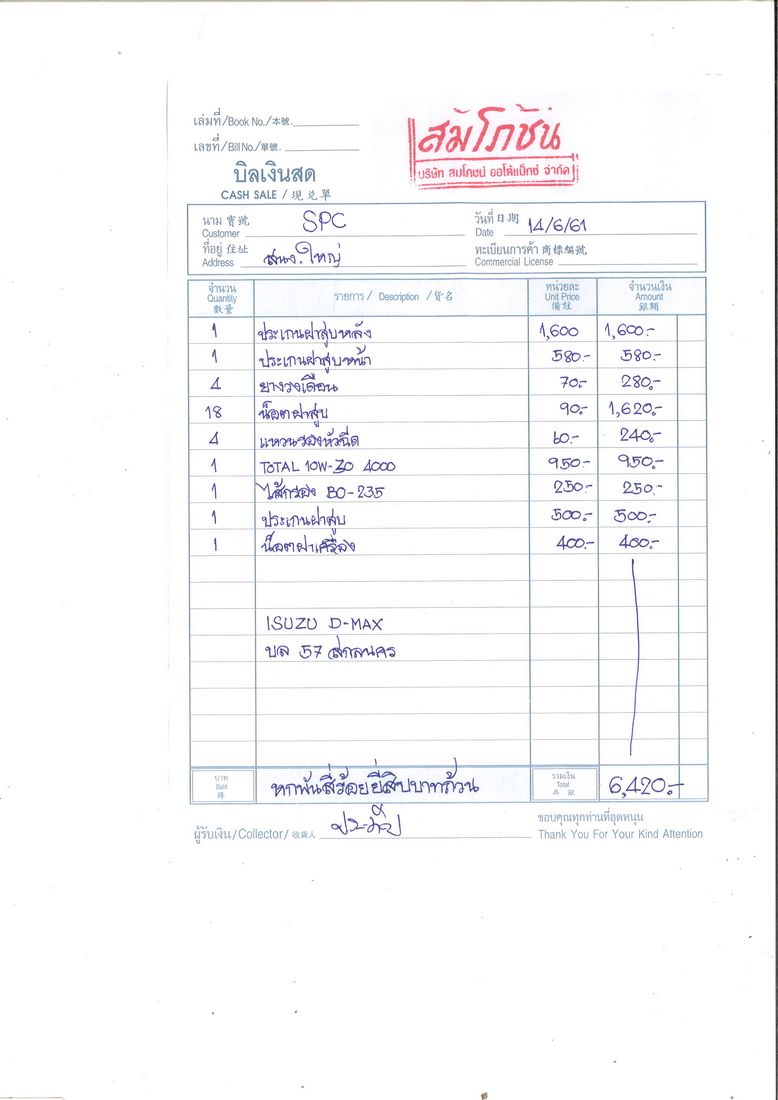 เล่มที่/Book No./本號.
เลขที่/Bill No./單號.
สมโภชน์
บริษัท สมโภชน์ ออโต้แม็กซ์ จำกัด
บิลเงินสด
CASH SALE / 現兑單
นาม 寶號 Customer SPC วันที่ 日期 Date 14/6/61
ที่อยู่ 住址 Address สนง.ใหญ่ ทะเบียนการค้า 商標編號 Commercial License
จำนวน Quantity 數量 รายการ / Description / 貨名 หน่วยละ Unit Price 備註 จำนวนเงิน Amount 銀額
1 ประเกนฝาสูบหลัง 1,600 1,600.-
1 ประเกนฝาสูบหน้า 580.- 580.-
4 ยางวงเดือน 70.- 280.-
18 น็อตฝาสูบ 90.- 1,620.-
4 แหวนรองหัวฉีด 60.- 240.-
1 TOTAL 10W-30 4000 950.- 950.-
1 ไส้กรอง BO-235 250.- 250.-
1 ประเกนฝาสูบ 500.- 500.-
1 น็อตฝาเครื่อง 400.- 400.-
ISUZU D-MAX
บล 57 สกลนคร
บาท Baht 銖 หกพันสี่ร้อยยี่สิบบาทถ้วน รวมเงิน Total 共銀 6,420.-
ผู้รับเงิน/Collector/收貨人 ขอบคุณทุกท่านที่อุดหนุน
Thank You For Your Kind Attention